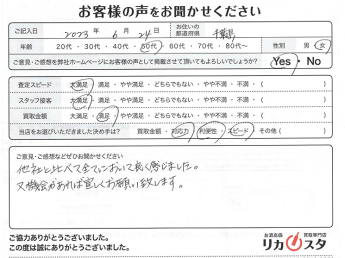 お客様の声をお聞かせください
ご記入日 2023 年 6 月 24 日 お住いの都道府県 千葉県
年齢 20代・30代・40代・50代・60代・70代・80代〜 性別 男・女
ご意見・ご感想を弊社ホームページにお客様の声として掲載させて頂いてもよろしいでしょうか? Yes・No
査定スピード 大満足・満足・やや満足・どちらでもない・やや不満・不満・( )
スタッフ接客 大満足・満足・やや満足・どちらでもない・やや不満・不満・( )
買取金額 大満足・満足・やや満足・どちらでもない・やや不満・不満・( )
当店をお選びいただきました決め手は? 買取金額・対応力・利便性・スピード・その他( )
ご意見・ご感想などぜひお聞かせください
他社と比べて全てにおいて良く感じました。
又機会があれば宜しくお願い致します。
ご協力ありがとうございました。
この度は誠にありがとうございました。
お酒高価 買取専門店
リカスタ